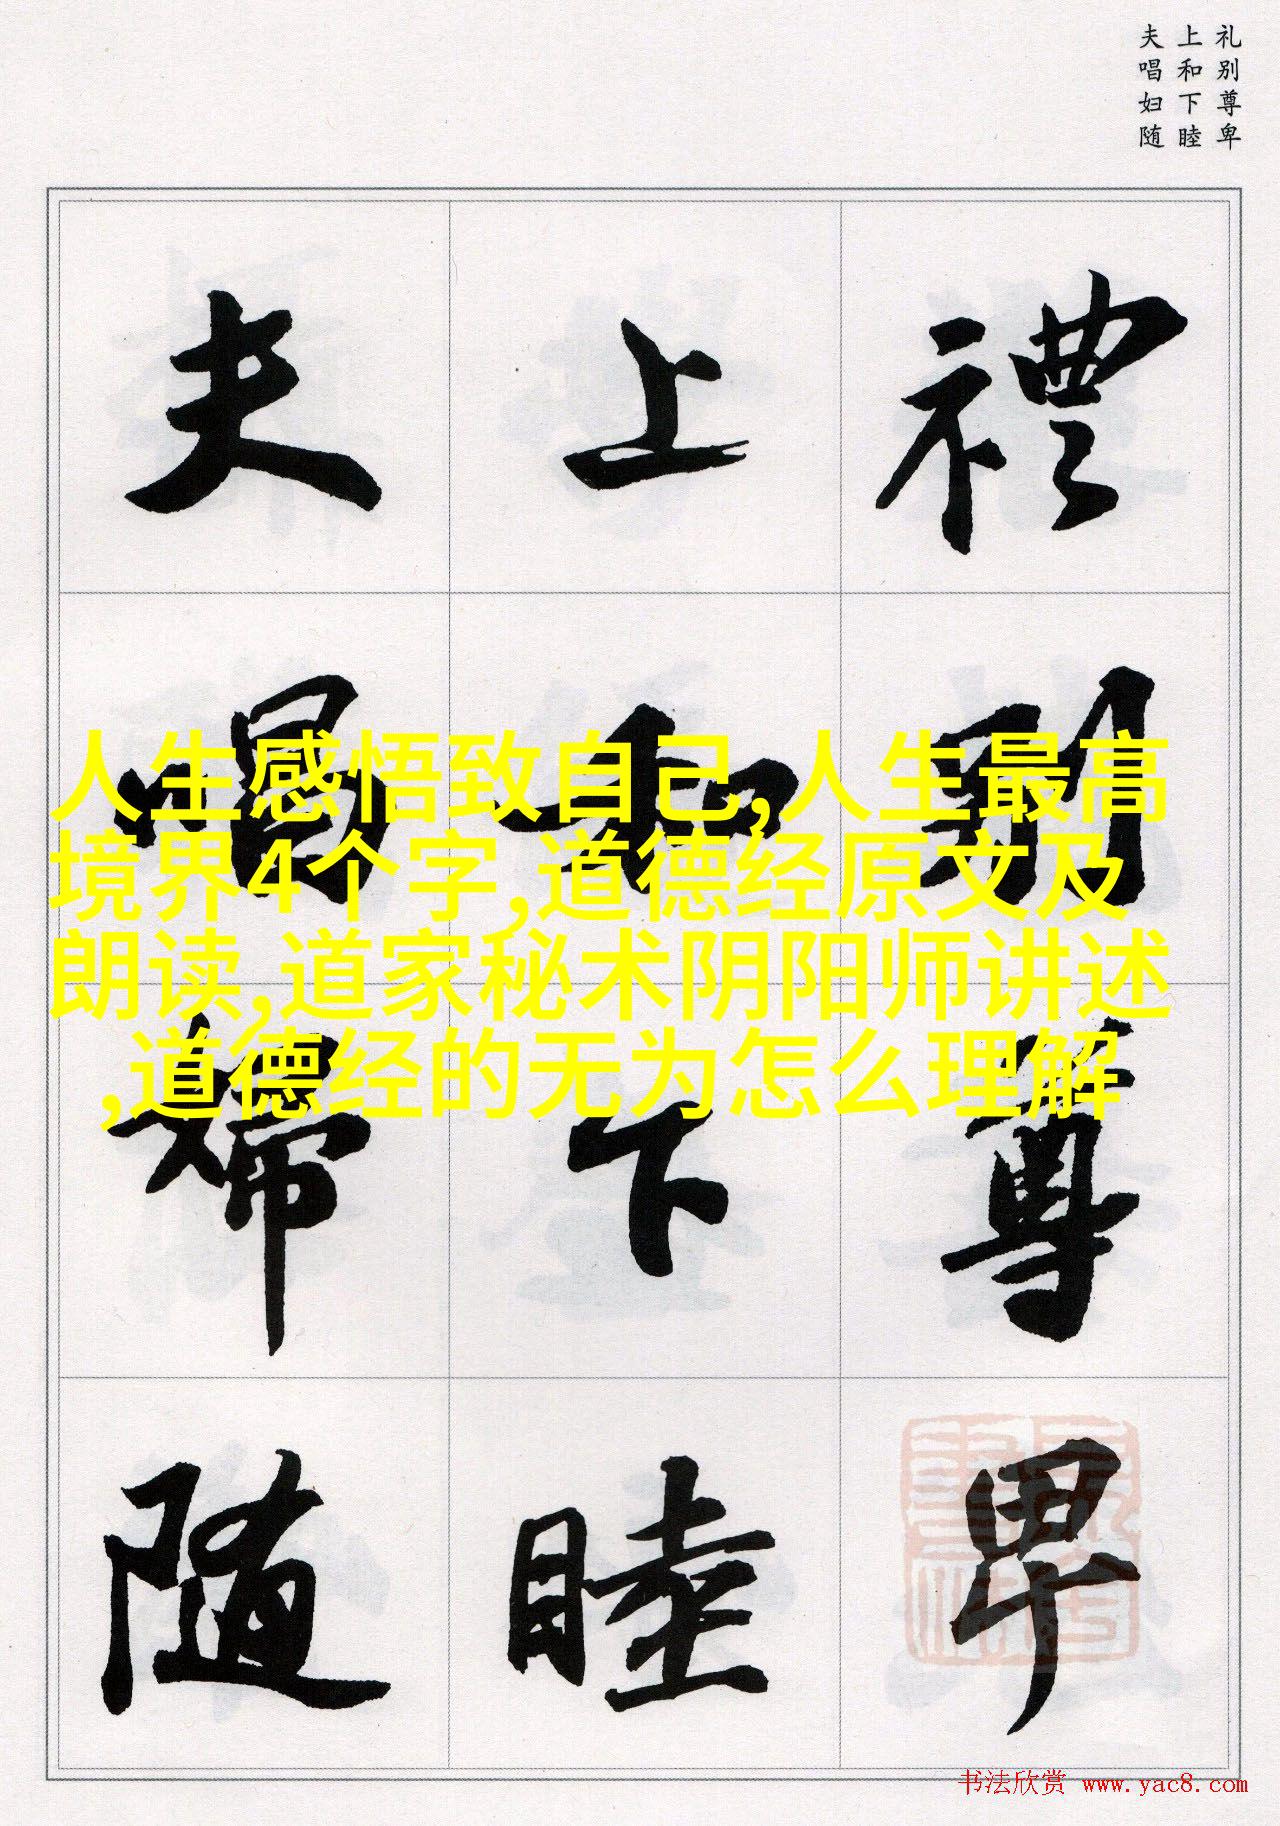 礼别尊卑
上和下睦
夫唱妇随
禮别尊卑
上和下睦
夫唱婦随
人生感悟致自己,人生最高
境界4个字,道德经原文及
朗读,道家秘术阴阳师讲述
,道德经的无为怎么理解
书法欣赏 www.yac8.com